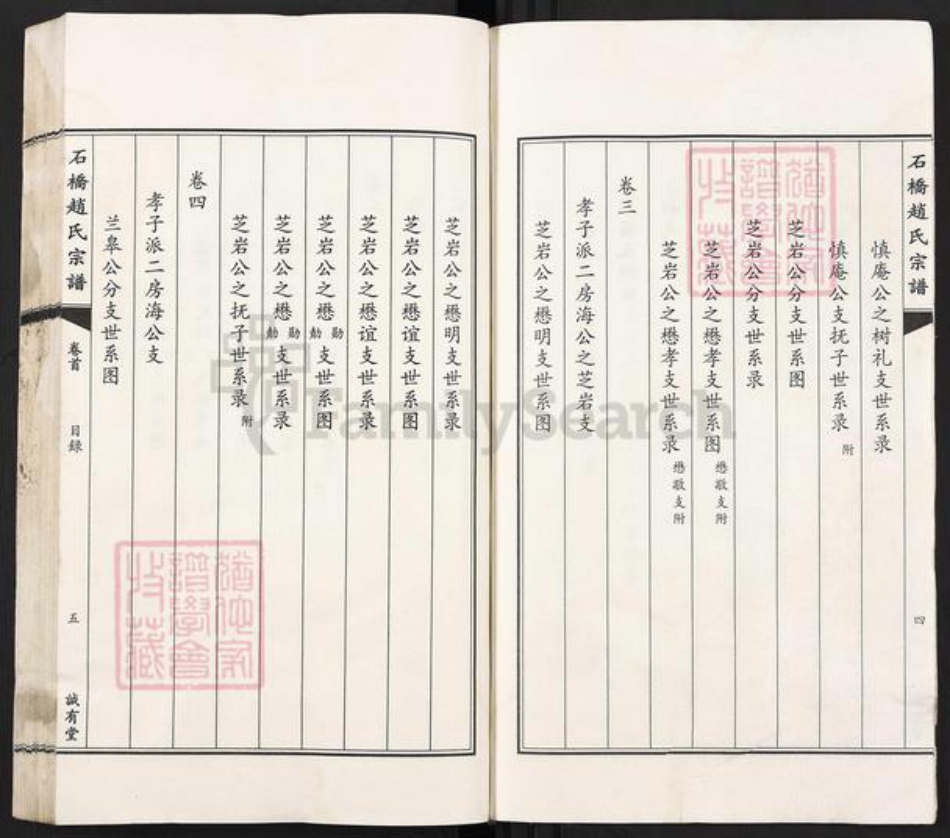 石橋趙氏宗譜
四
慎庵公之树礼支世系录
慎庵公支抚子世系录 附
芝岩公分支世系图
芝岩公分支世系录
芝岩公之懋孝支世系图 懋敬支附
芝岩公之懋孝支世系录 懋敬支附
卷三
孝子派二房海公之芝岩支
芝岩公之懋明支世系图
芝岩公之懋明支世系录
芝岩公之懋谊支世系图
芝岩公之懋谊支世系录
芝岩公之懋勋勣支世系图
芝岩公之懋勋勣支世系录
芝岩公之抚子世系录 附
卷四
孝子派二房海公支
兰皋公分支世系图
石橋趙氏宗譜
卷首
目録
五
誠有堂
猶他家
譜學會
收藏
猶他家
譜學會
收藏
FamilySearch